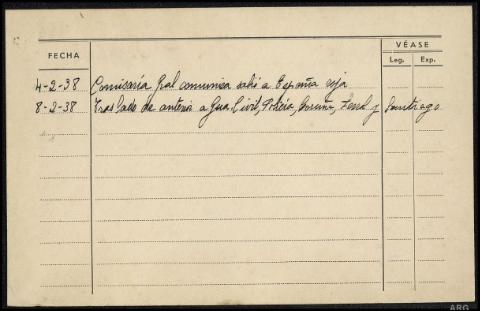 VÉASE
FECHA
Leg. Exp.
4-2-38 Comisaría Gral comunica salió a España roja
8-2-38 Traslado de anterior a Gua. Civil, Policia, Coruña, Ferrol y Santiago
ARG